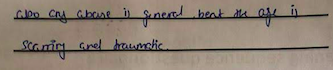 also any abuse in general bent the age is
scarring and traumatic.